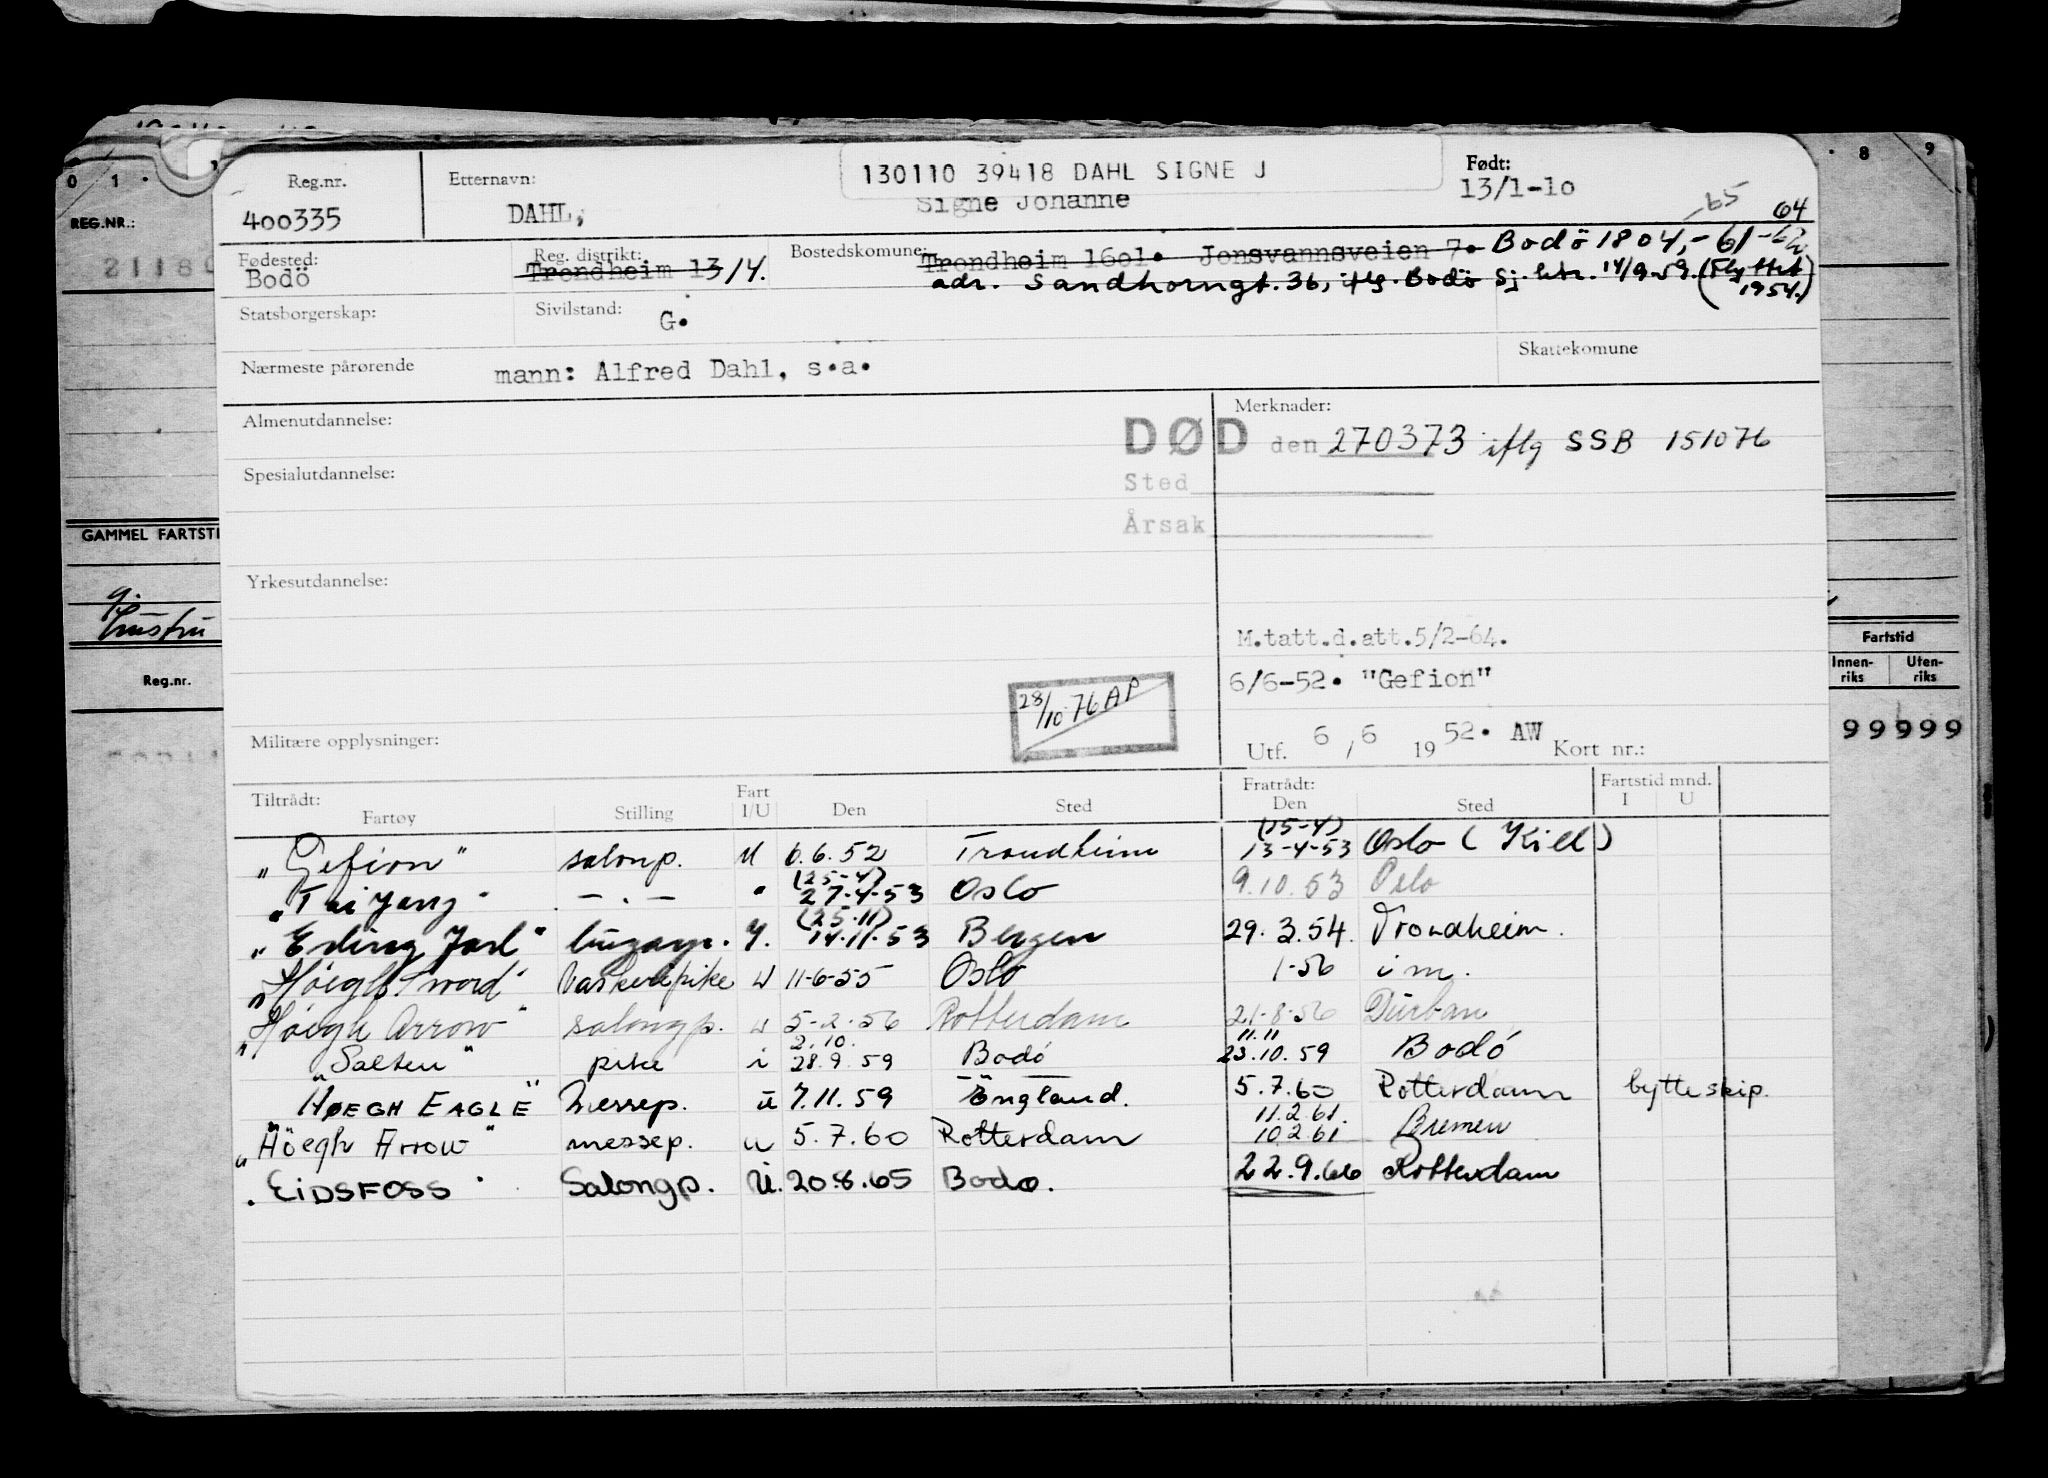 0 1 · 8 9
REG.NR.:
Reg.nr. Etternavn: 130110 39418 DAHL SIGNE J Født:
400335 DAHL, Signe Johanne 13/1-10
-65 64
Fødested: Reg. distrikt: Bostedskomune: Trondheim 1601. Jonsvannsveien 7. Bodö 1804, - 61 -62
Bodö Trondheim 13 14. adr. Sandhorngt. 36, iflg. Bodö Sj. ktr. 14/9-59. (Flyttet 1954.)
Statsborgerskap: Sivilstand: G.
Nærmeste pårørende mann: Alfred Dahl, s.a. Skattekomune
Almenutdannelse: Merknader:
DØD den 270373 iflg SSB 151076
Spesialutdannelse: Sted
Årsak
GAMMEL FARTSTI
Yrkesutdannelse:
g.
Hustru
M.tatt.d.att.5/2-64.
Fartstid
Innen-riks Uten-riks
Reg.nr.
6/6-52. "Gefion"
28/10-76 AP
99999
Militære opplysninger: Utf. 6 / 6 19 52. AW Kort nr.:
Tiltrådt: Fratrådt: Fartstid mnd.
Fartøy Stilling Fart I/U Den Sted Den Sted I U
"Gefion" salonp. U 6.6.52 Trondheim (25-4) 13-4-53 Oslo (Kiel)
"Tai Yang" - . - " (25-4) 27-4-53 Oslo 9.10.53 Oslo
"Erling Jarl" lugarp. I. (25.11) 14.11.53 Bergen 29.3.54. Trondheim.
"Høegh Sword" Vaskeripike u 11-6-55 Oslo 1-56 im.
"Høegh Arrow" salongp. u 5-2-56 Rotterdam 21-8-56 Durban
"Salten" pike i 2.10. 28.9.59 Bodö 11.11 23.10.59 Bodó
"HØEGH EAGLE" Messep. u 7.11.59 England. 5.7.60 Rotterdam bytte skip.
"Höegh Arrow" messep. u 5.7.60 Rotterdam 11.2.61. 10 2.61 Bremen
"EIDSFOSS" Salongp. U. 20.8.65 Bodø. 22.9.66 Rotterdam